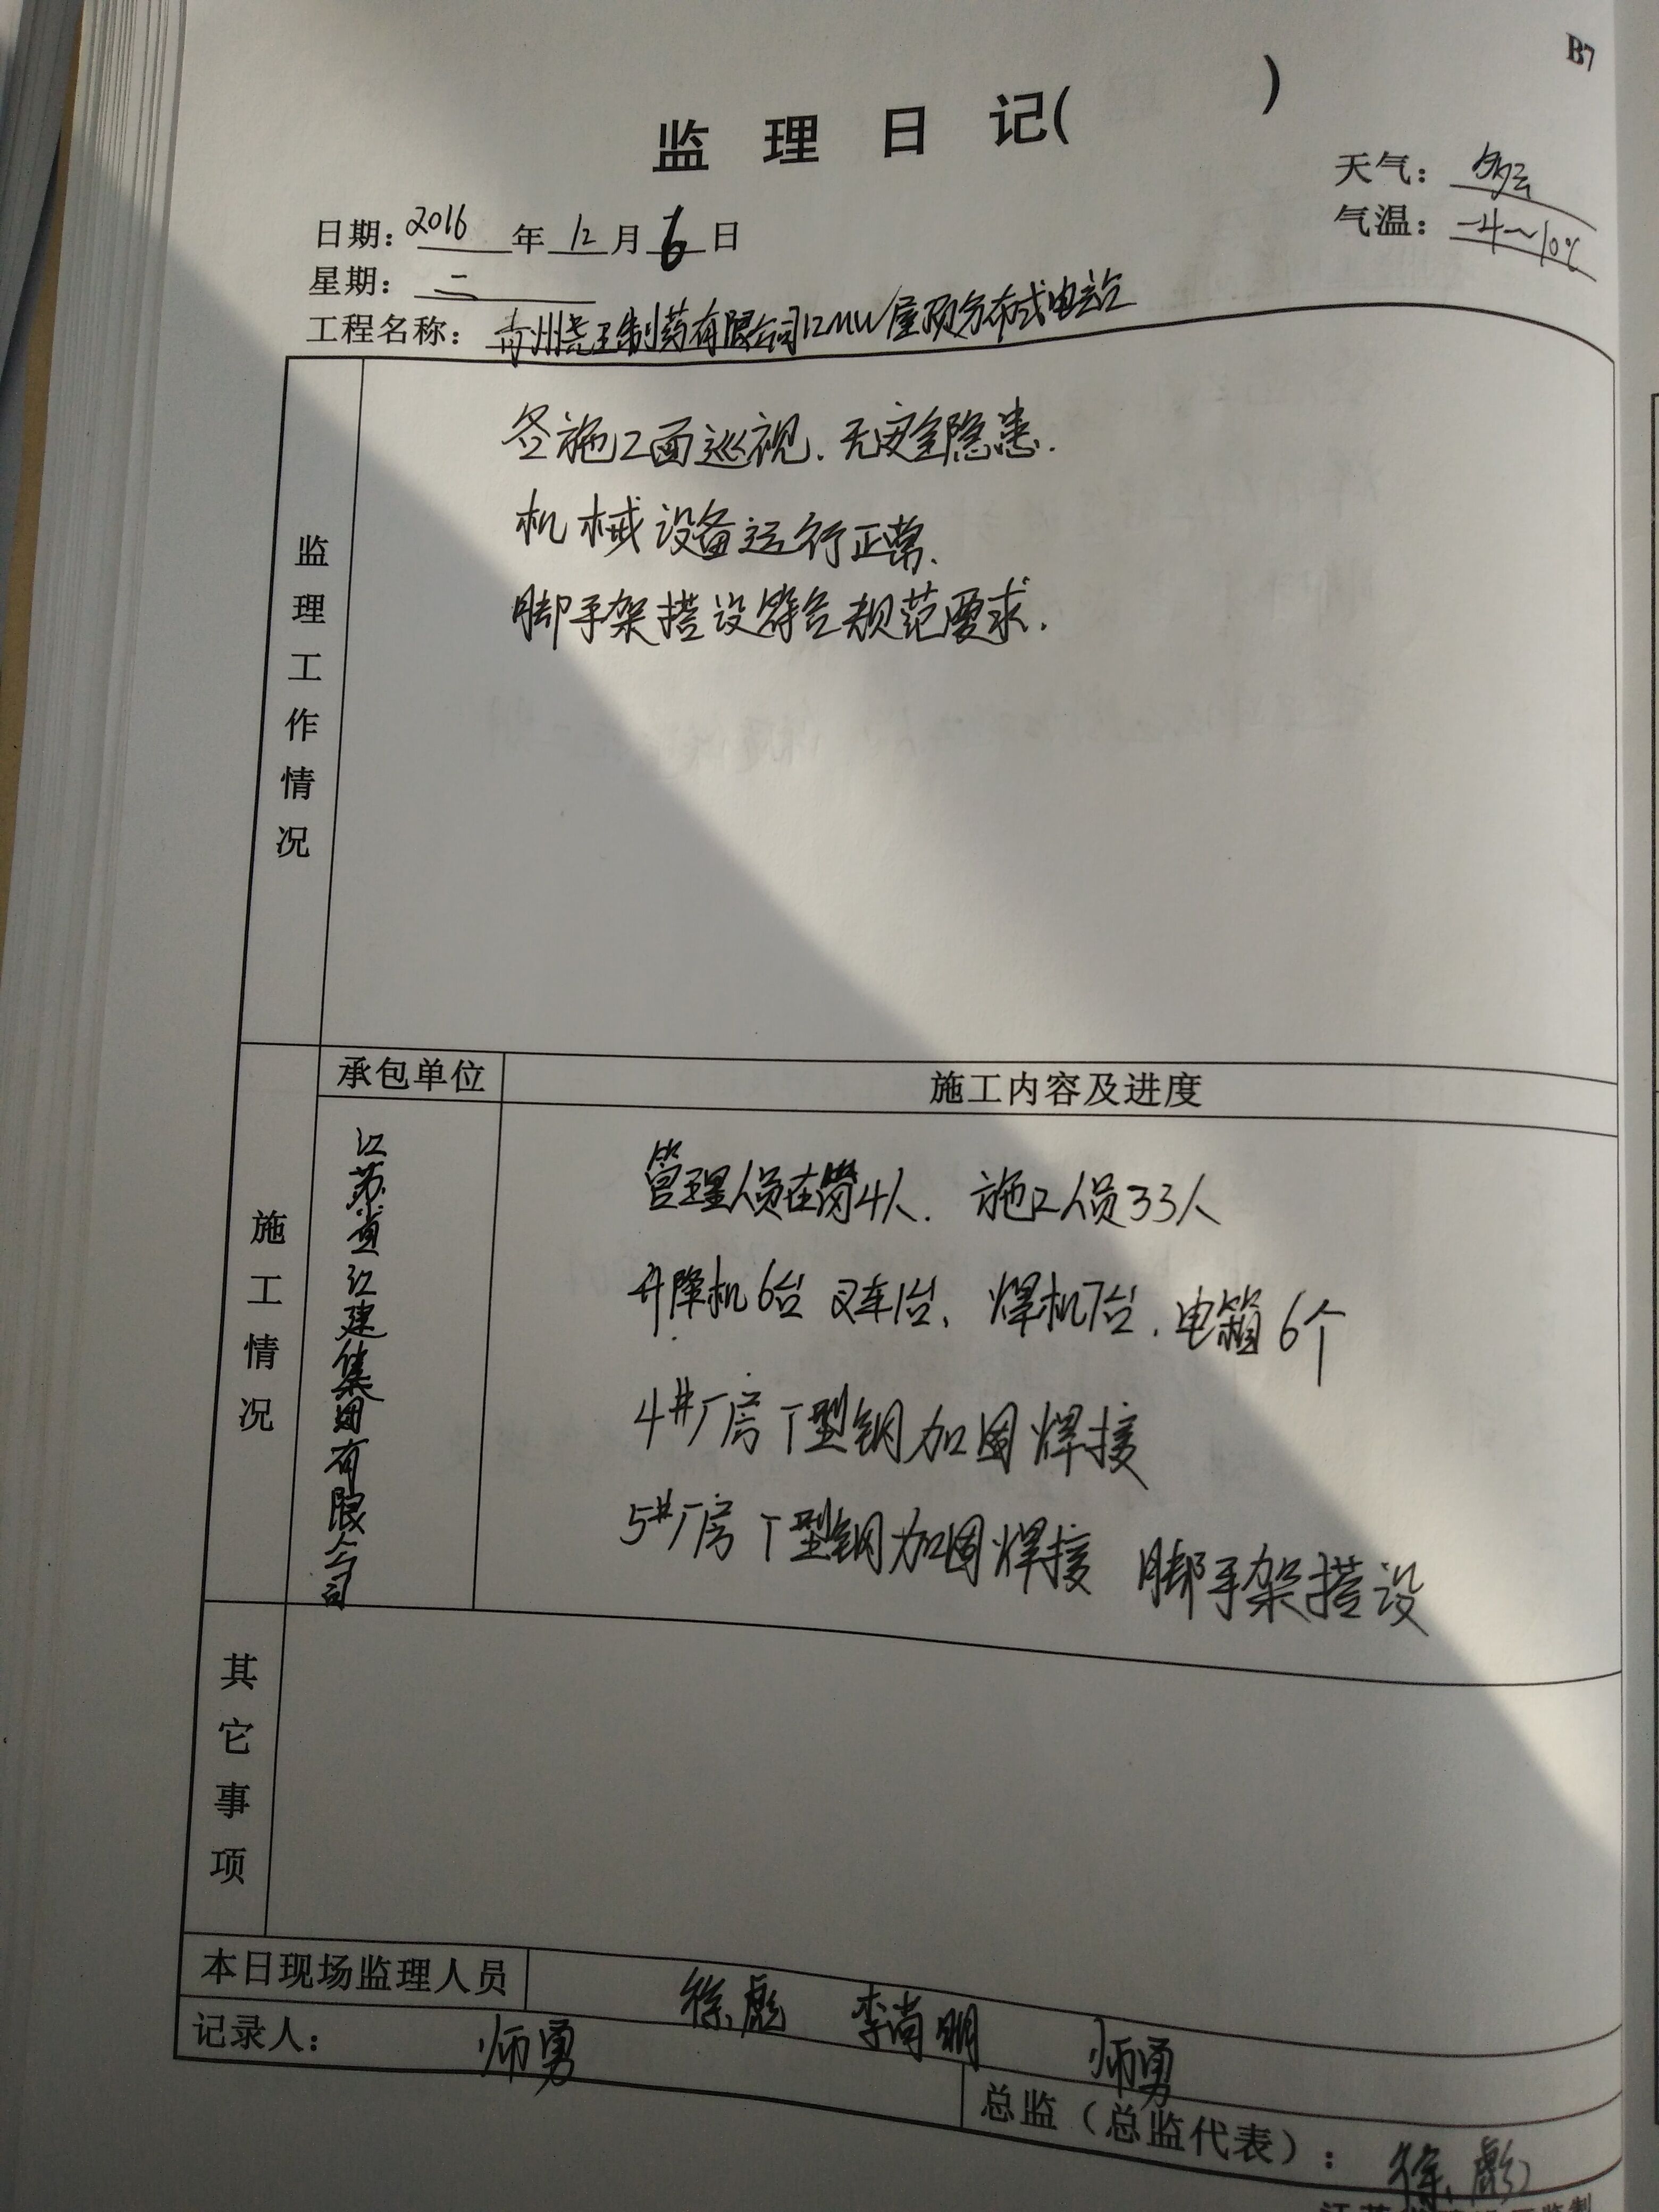 B7
监 理 日 记( )
天气: 多云
气温: -4～10℃
日期: 2016 年 12 月 6 日
星期: 二
工程名称: 青州尧王制药有限公司12MW屋顶分布式电站
监理工作情况
各施工面巡视.无安全隐患.
机械设备运行正常.
脚手架搭设符合规范要求.
施工情况
承包单位
施工内容及进度
江苏省江建集团有限公司
管理人员在岗4人. 施工人员33人
升降机6台 叉车1台、焊机7台.电箱6个
4#厂房T型钢加固焊接
5#厂房T型钢加固焊接 脚手架搭设
其它事项
本日现场监理人员
徐彪 李尚明 师勇
记录人: 师勇
总监(总监代表): 徐彪